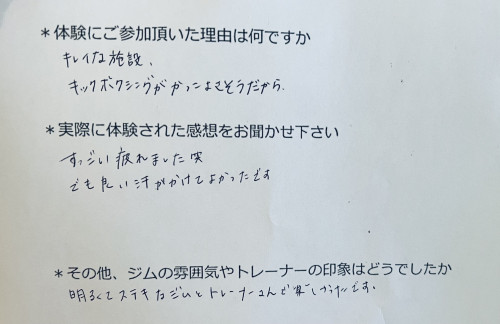 *体験にご参加頂いた理由は何ですか
キレイな施設、
キックボクシングがかっこよさそうだから.
*実際に体験された感想をお聞かせ下さい
すっごい疲れました笑
でも良い汗がかけてよかったです
*その他、ジムの雰囲気やトレーナーの印象はどうでしたか
明るくてステキなジムとトレーナーさんで楽しかったです.